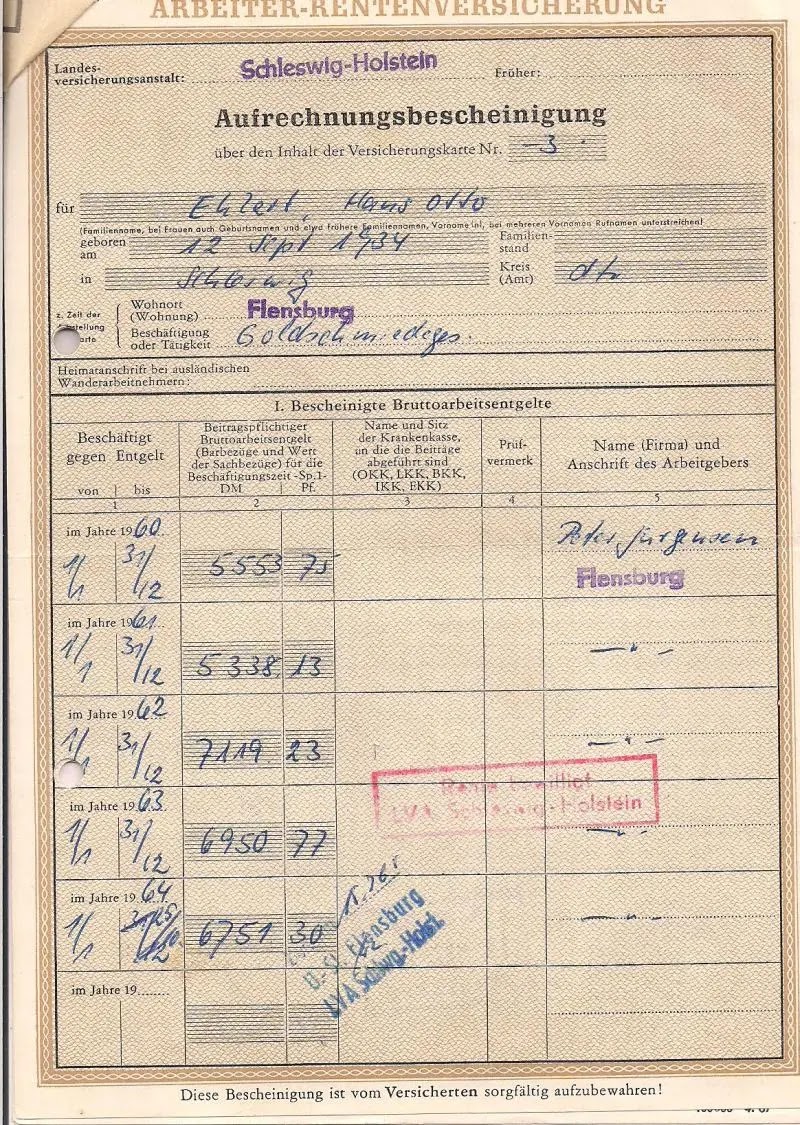 ARBEITER-RENTENVERSICHERUNG
Landes-
versicherungsanstalt: Schleswig-Holstein Früher:
Aufrechnungsbescheinigung
über den Inhalt der Versicherungskarte Nr. 3
für Ehlert, Hans Otto
(Familienname, bei Frauen auch Geburtsnamen und etwa frühere Familiennamen, Vorname(n), bei mehreren Vornamen Rufnamen unterstreichen)
geboren am 12 Sept 1934 Familienstand
in Schleswig Kreis (Amt) dto
z. Zeit der
Wohnort
(Wohnung) Flensburg
Beschäftigung
oder Tätigkeit Goldschmiedeges.
Heimatanschrift bei ausländischen
Wanderarbeitnehmern:
I. Bescheinigte Bruttoarbeitsentgelte
Beschäftigt
gegen Entgelt
von bis
1
Beitragspflichtiger
Bruttoarbeitsentgelt
(Barbezüge und Wert
der Sachbezüge) für die
Beschäftigungszeit -Sp.1-
DM Pf.
2
Name und Sitz
der Krankenkasse,
an die die Beiträge
abgeführt sind
(OKK, LKK, BKK,
IKK, EKK)
3
Prüf-
vermerk
4
Name (Firma) und
Anschrift des Arbeitgebers
5
im Jahre 1960
1/1 31/12 5553 75 Peter Jürgensen
Flensburg
im Jahre 1961
1/1 31/12 5338 13 — " —
im Jahre 1962
1/1 31/12 7119 23 — " —
Rente bewilligt
LVA Schleswig-Holstein
im Jahre 1963
1/1 31/12 6950 77 — " —
im Jahre 1964
1/1 6751 30 — " —
Flensburg
LVA Schlesw.-Holst.
im Jahre 19
Diese Bescheinigung ist vom Versicherten sorgfältig aufzubewahren!